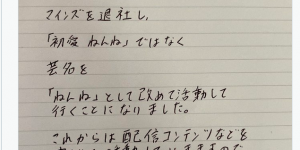 マインズを退社し、
「初愛 ねんね」ではなく
芸名を
「ねんね」として改めて活動して
行くことになりました。
これからは配信コンテンツなどを